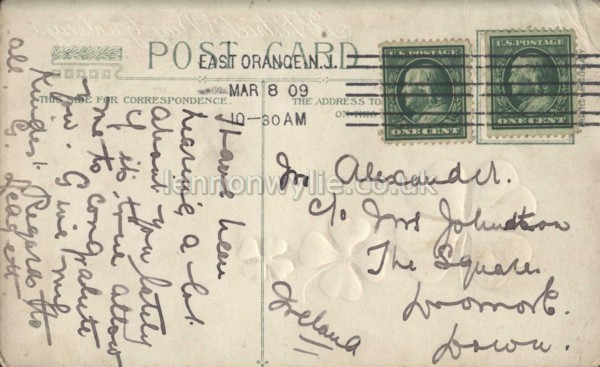 POST CARD
EAST ORANGE, N.J.
MAR 8 09
10-30AM
U.S. POSTAGE
ONE CENT
U.S. POSTAGE
ONE CENT
THIS SIDE FOR CORRESPONDENCE.
THE ADDRESS TO
ON THIS
Have been
hearing a lot
about you lately
if its true allow
me to congratulate
you. Give my
Kindest Regards to
all. G.
Mr Alexander.
c/o Mrs Johnston
The Square
Dromore.
Down.
Ireland
lennonwylie.co.uk